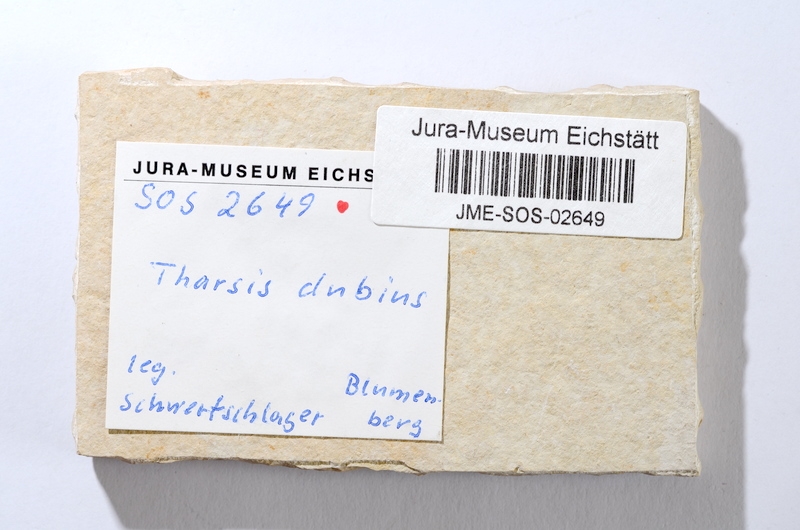 JURA-MUSEUM EICHS
SOS 2649
Tharsis dubius
leg.
Schwertschlager
Blumen-
berg
Jura-Museum Eichstätt
JME-SOS-02649